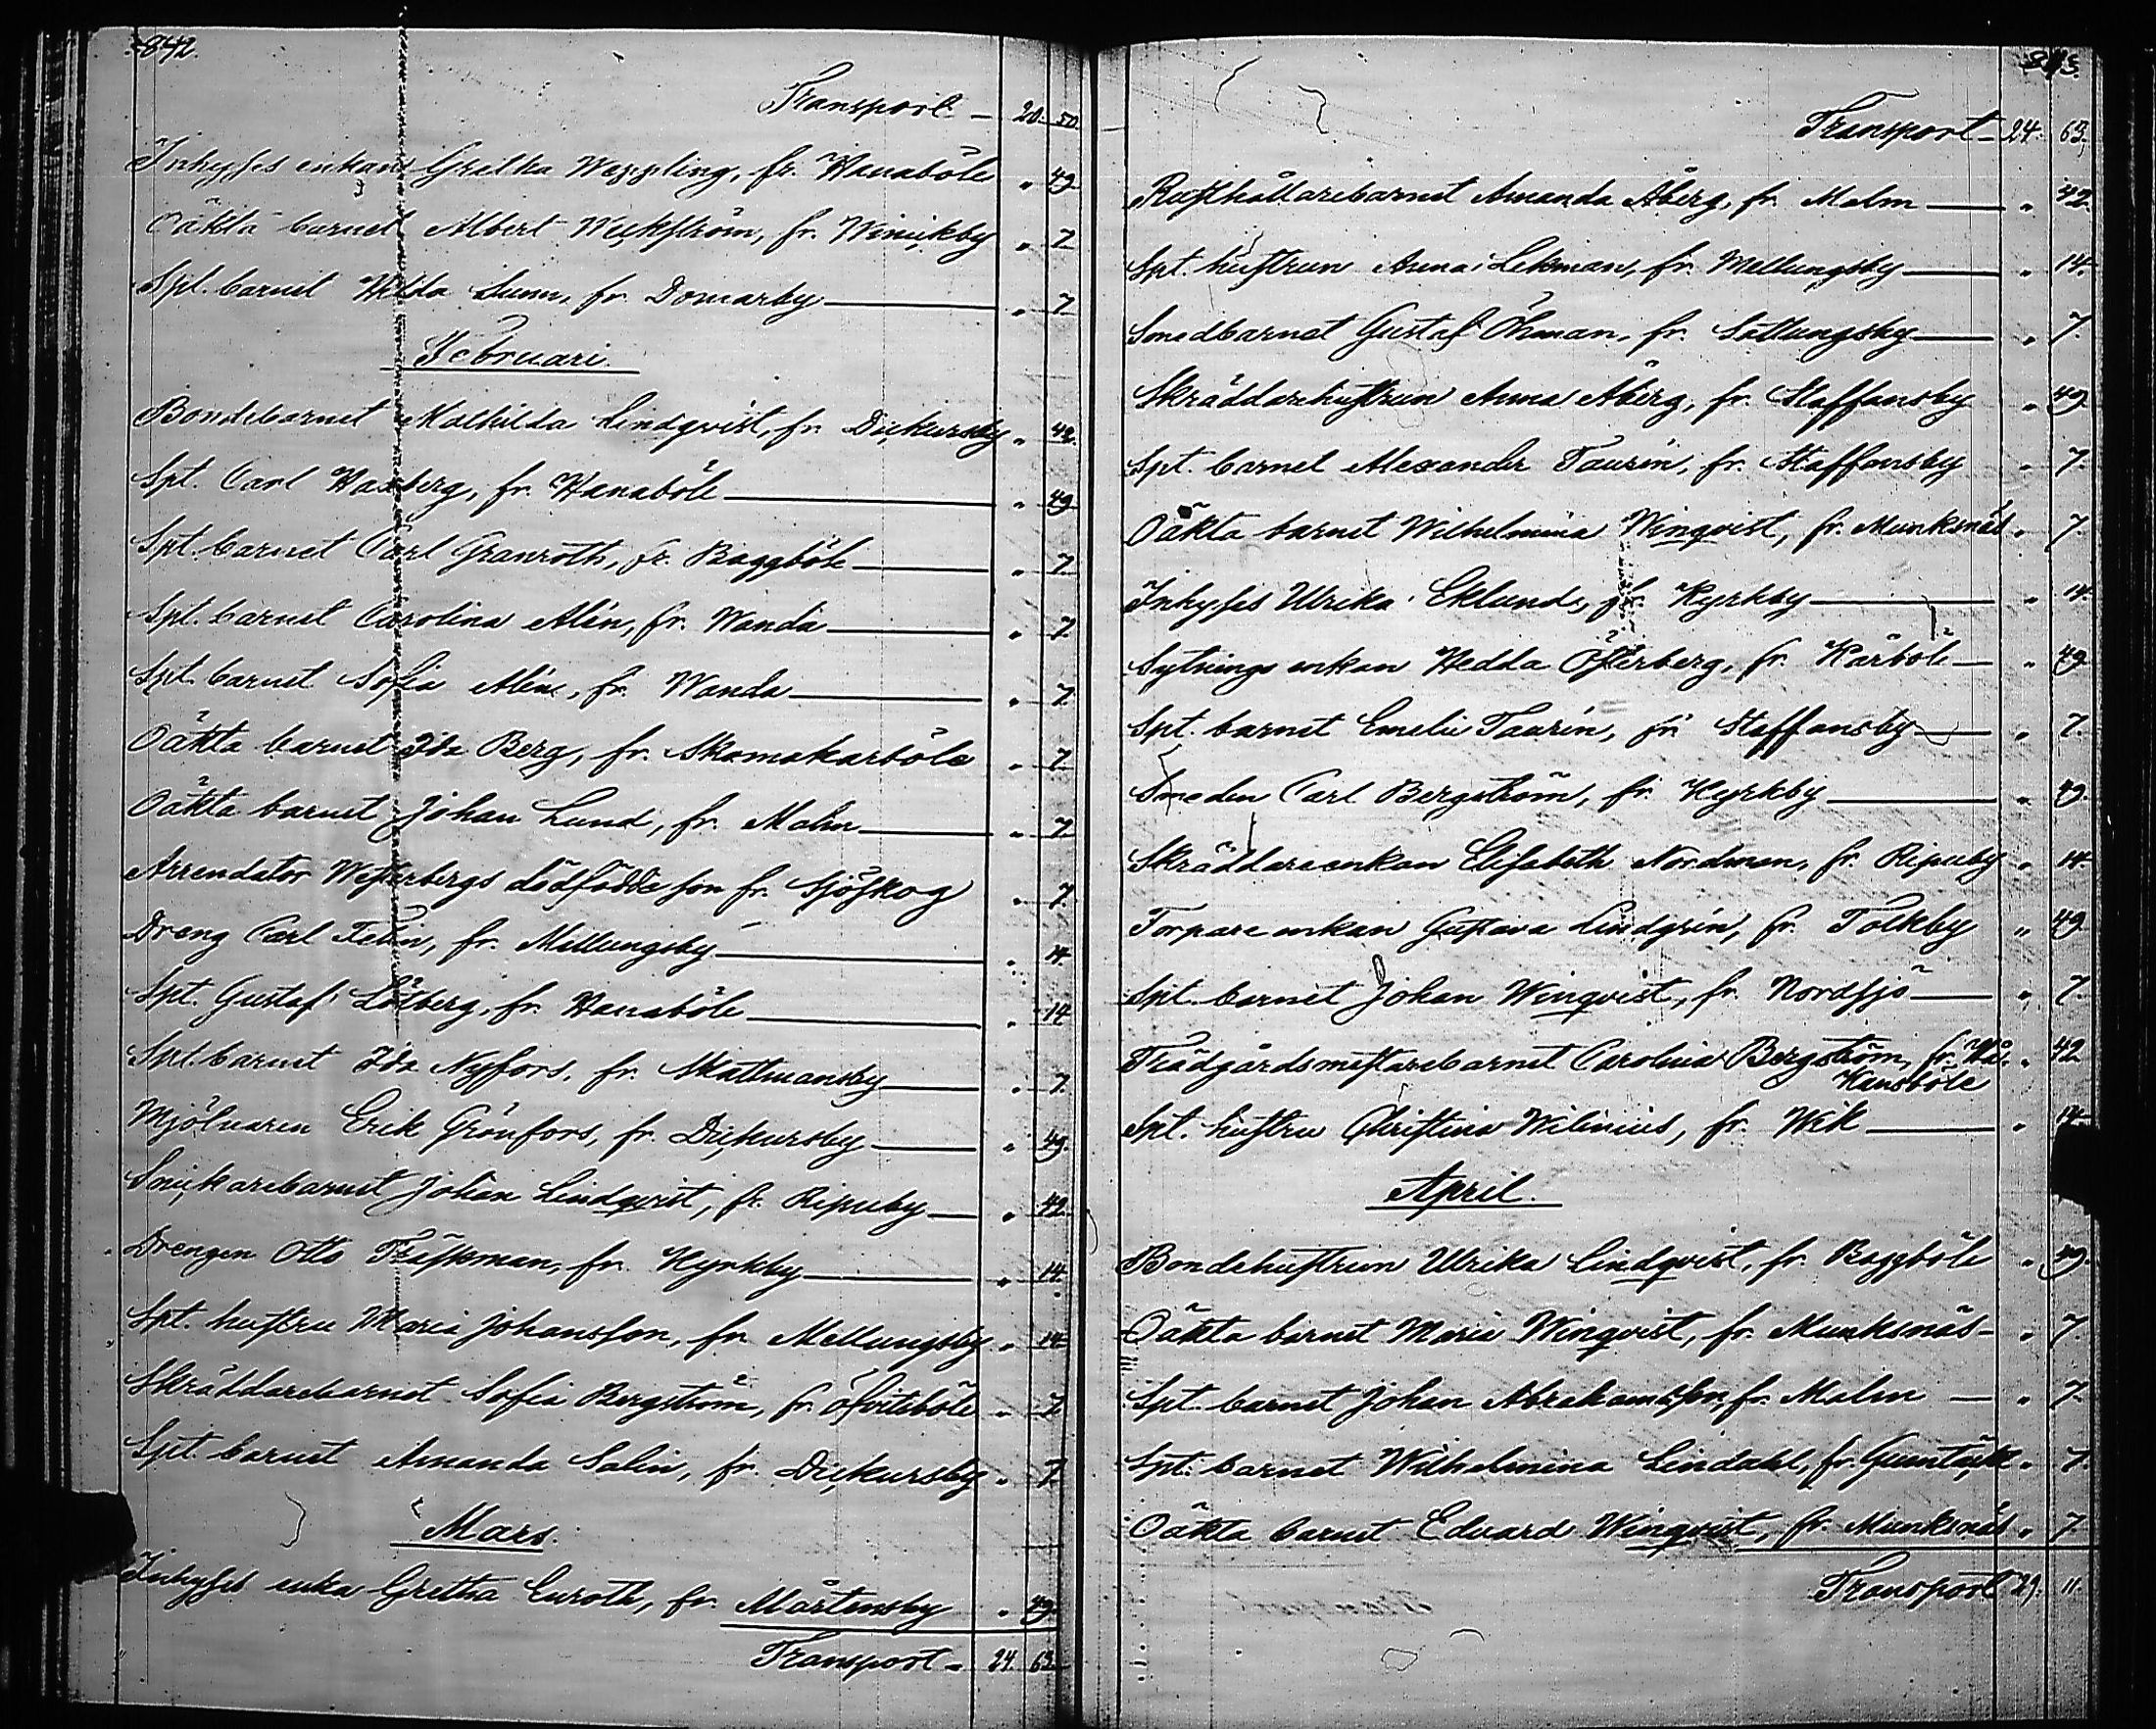 842.
Transport - 20. 50.
Inhyses enkan Gretha Weppling, fr. Hanaböle " 49
Oäkta barnet Albert Weckström, fr. Winickby " 7
Spt. barnet Hilda Sunn, fr. Domarby " 7
Februari.
Bondebarnet Mathilda Lindqvist, fr. Dickursby " 42.
Spt. Carl Waxberg, fr. Hanaböle " 49
Spt. barnet Carl Granroth, fr. Baggböle " 7
Spt. barnet Carolina Alén, fr. Wanda " 7
Spt. barnet Sofia Alén, fr. Wanda " 7
Oäkta barnet Ida Berg, fr. Skomakarböle " 7
Oäkta barnet Johan Lund, fr. Malm " 7
Arrendator Westerbergs dödfödde son fr. Sjöskog " 7
Dreng Carl Felin, fr. Mellungsby " 14.
Spt. Gustaf Löfberg, fr. Hanaböle " 14
Spt. barnet Ida Nyfors, fr. Skattmansby " 7.
Mjölnaren Erik Grönfors, fr. Dickursby " 49.
Snickarebarnet Johan Lindqvist, fr. Ripuby " 42.
Drengen Otto Träskman, fr. Kyrkby " 14.
Spt. hustru Maria Johansson, fr. Mellungsby " 14
Skräddarebarnet Sofia Bergström, fr. Öfvitsböle " 7
Spt. barnet Amanda Salin, fr. Dickursby " 7
Mars.
Inhyses enka Gretha Enroth, fr. Mårtensby " 49.
Transport - 24. 63.
843.
Transport - 24. 63,
Rusthållarebarnet Amanda Åberg, fr. Malm " 42.
Spt. hustrun Anna Lekman, fr. Mellungsby " 14.
Smedbarnet Gustaf Öhman, fr. Sottungsby " 7.
Skräddarehustrun Anna Åberg, fr. Staffansby " 49
Spt. barnet Alexander Taurén, fr. Staffansby " 7.
Oäkta barnet Wilhelmina Winqvist, fr. Munksnäs " 7.
Inhyses Ulrika Eklund, fr. Kyrkby " 14.
Sytnings enkan Hedda Österberg, fr. Kårböle " 49
Spt. barnet Emelie Taurén, fr. Staffansby " 7.
Smeden Carl Bergström, fr. Kyrkby " 49.
Skräddareenkan Elisabeth Nordman, fr. Ripuby " 14.
Torpare enkan Gustava Lindgrén, fr. Tolkby " 49
Spt. barnet Johan Winqvist, fr. Nordsjö " 7.
Trädgårdsmästarebarnet Carolina Bergström, fr. " 42
Spt. hustru Christina Wilenius, fr. Wik " 14
April.
Bondehustrun Ulrika Lindqvist, fr. Baggböle " 49.
Oäkta barnet Maria Winqvist, fr. Munksnäs - " 7.
Spt. barnet Johan Abrahamsson, fr. Malm " 7.
Spt. barnet Wilhelmina Lindahl, fr. Gumtäkt " 7.
Oäkta barnet Edvard Winqvist, fr. Munksnäs " 7.
Transport 29. 11.